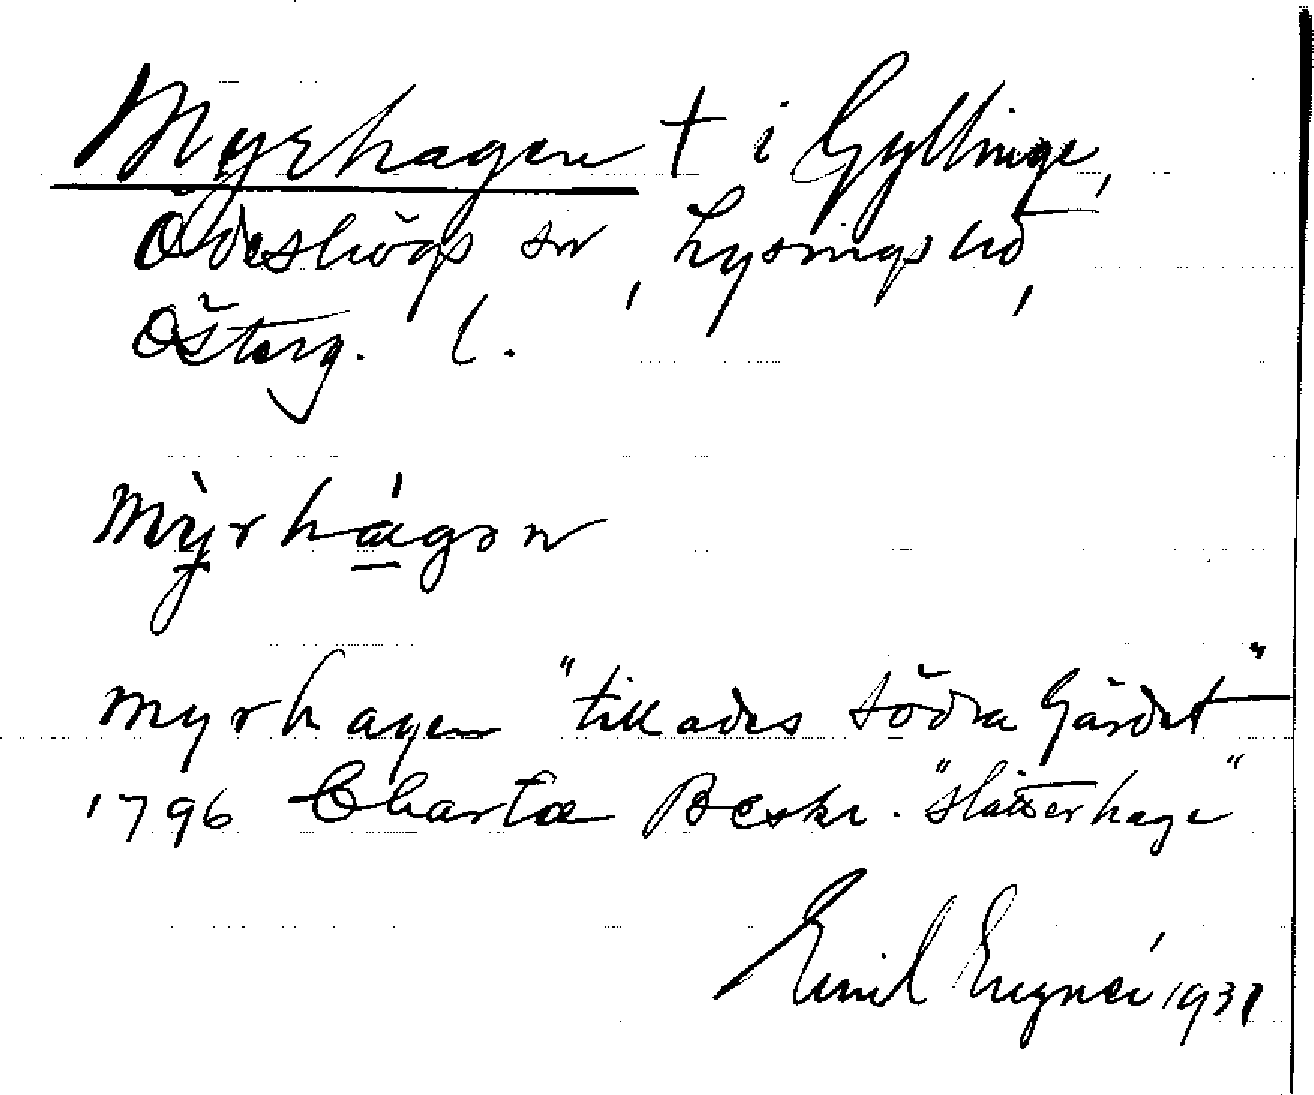 Myrhagen † i Gyllinge,
Ödeshögs sn, Lysings hd,
Österg. l.
Mỳrhágən
Myrhagen "till ades södra Gärdet"
1796 Charta Beskr. "slåtterhage"
Emil Engnér 1931